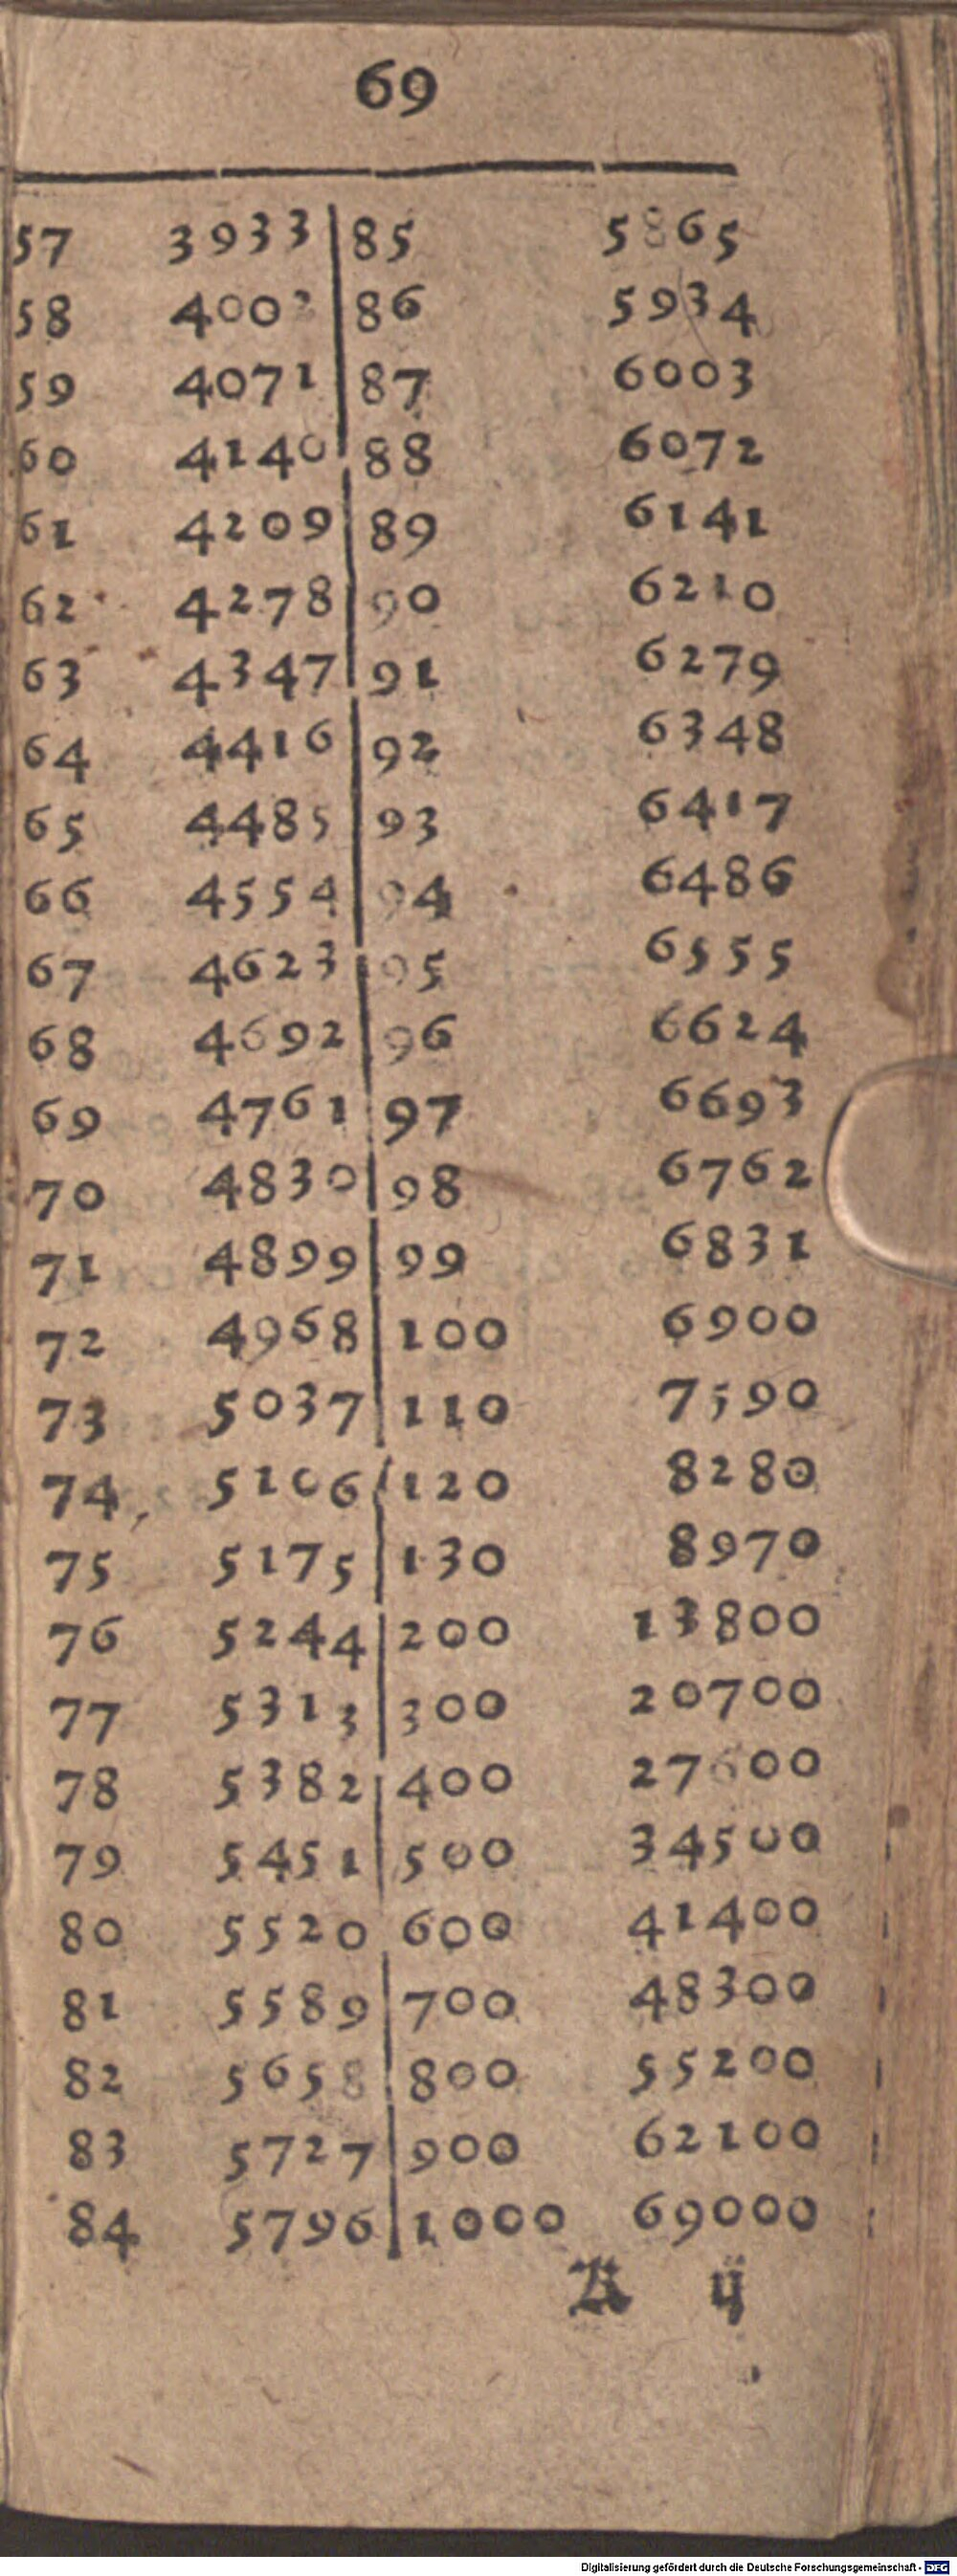 69
57 3933 85 5865
58 4002 86 5934
59 4071 87 6003
60 4140 88 6072
61 4209 89 6141
62 4278 90 6210
63 4347 91 6279
64 4416 92 6348
65 4485 93 6417
66 4554 94 6486
67 4623 95 6555
68 4692 96 6624
69 4761 97 6693
70 4830 98 6762
71 4899 99 6831
72 4968 100 6900
73 5037 110 7590
74 5106 120 8280
75 5175 130 8970
76 5244 200 13800
77 5313 300 20700
78 5382 400 27600
79 5451 500 34500
80 5520 600 41400
81 5589 700 48300
82 5658 800 55200
83 5727 900 62100
84 5796 1000 69000
ij
Digitalisierung gefördert durch die Deutsche Forschungsgemeinschaft - DFG